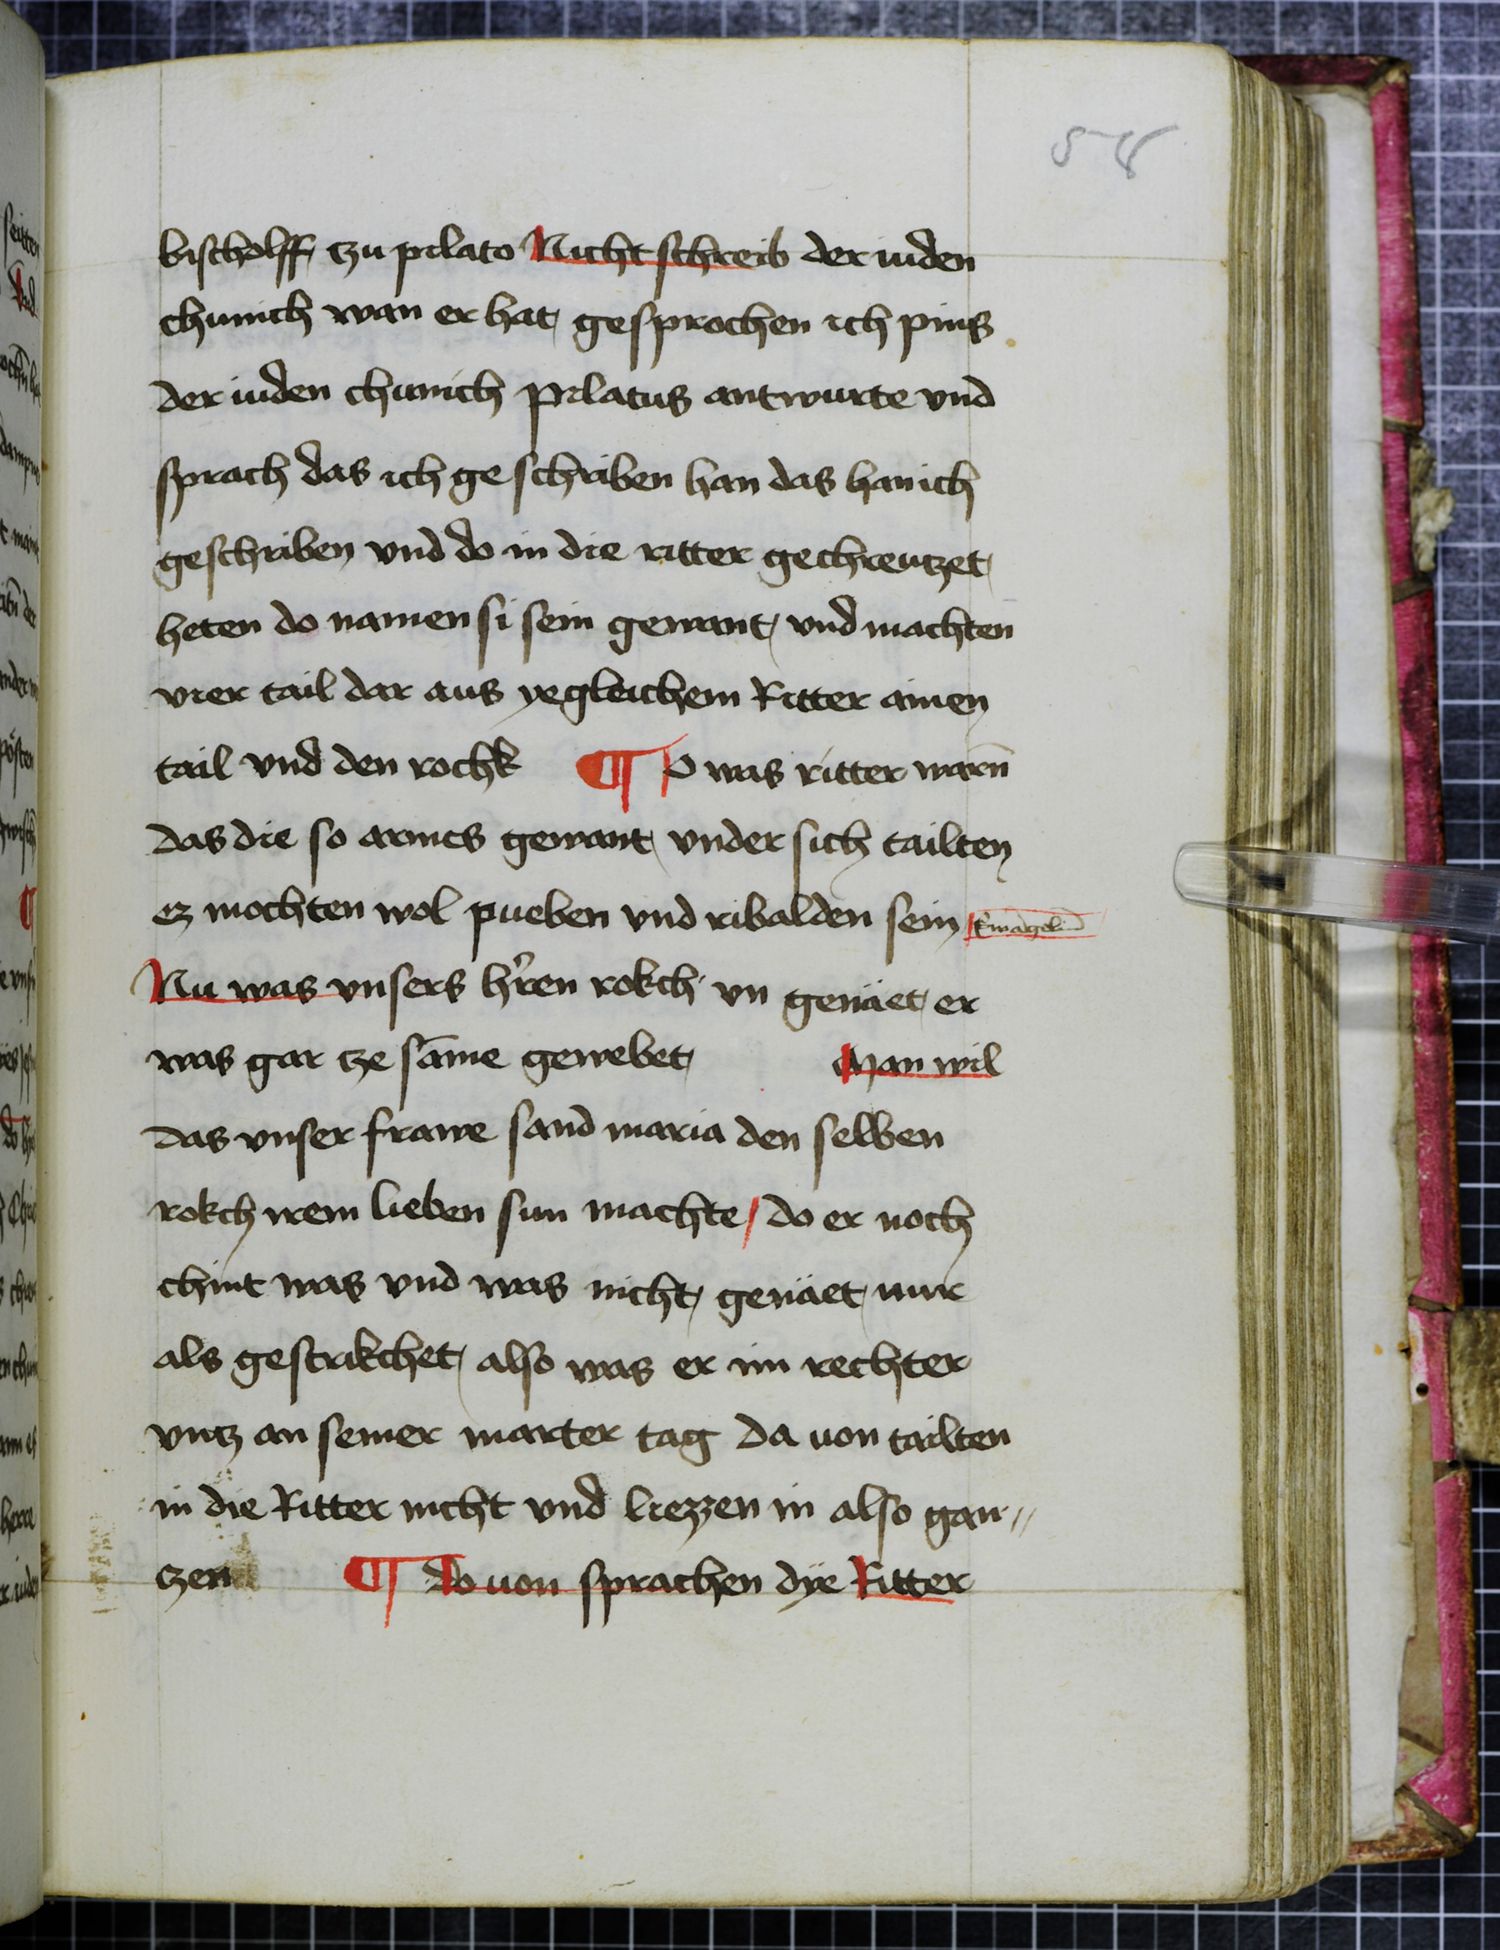 58
bischolff tzu pilato Nicht schreib der iuden
chunich wan er hat gesprochen ich pins
der iuden chunich Pilatus antwurte vnd
sprach das ich ge schriben han das han ich
geschriben vnd do in die ritter gechreutzet
heten do namen si sein gewant vnd machten
vier tail dar aus yegleichem Ritter ainen
tail vnd den rochk ¶ O was ritter warn̄
das die so arms gewant vnder sich tailten
ez mochten wol pueben vnd ribalden sein
Nu was vnsers hr̄en rokch vn genäet er
was gar tze sāme gewebet Man wil
das vnser frawe sand maria den selben
rokch irem lieben sun machte / do er noch
chint was vnd was nicht genäet nur
als gestrikchet also was er im rechter
vntz an seiner marter tag da uon tailten
in die Ritter nicht vnd liezzen in also gan//
tzen ¶ do uon sprachen dÿe Ritter